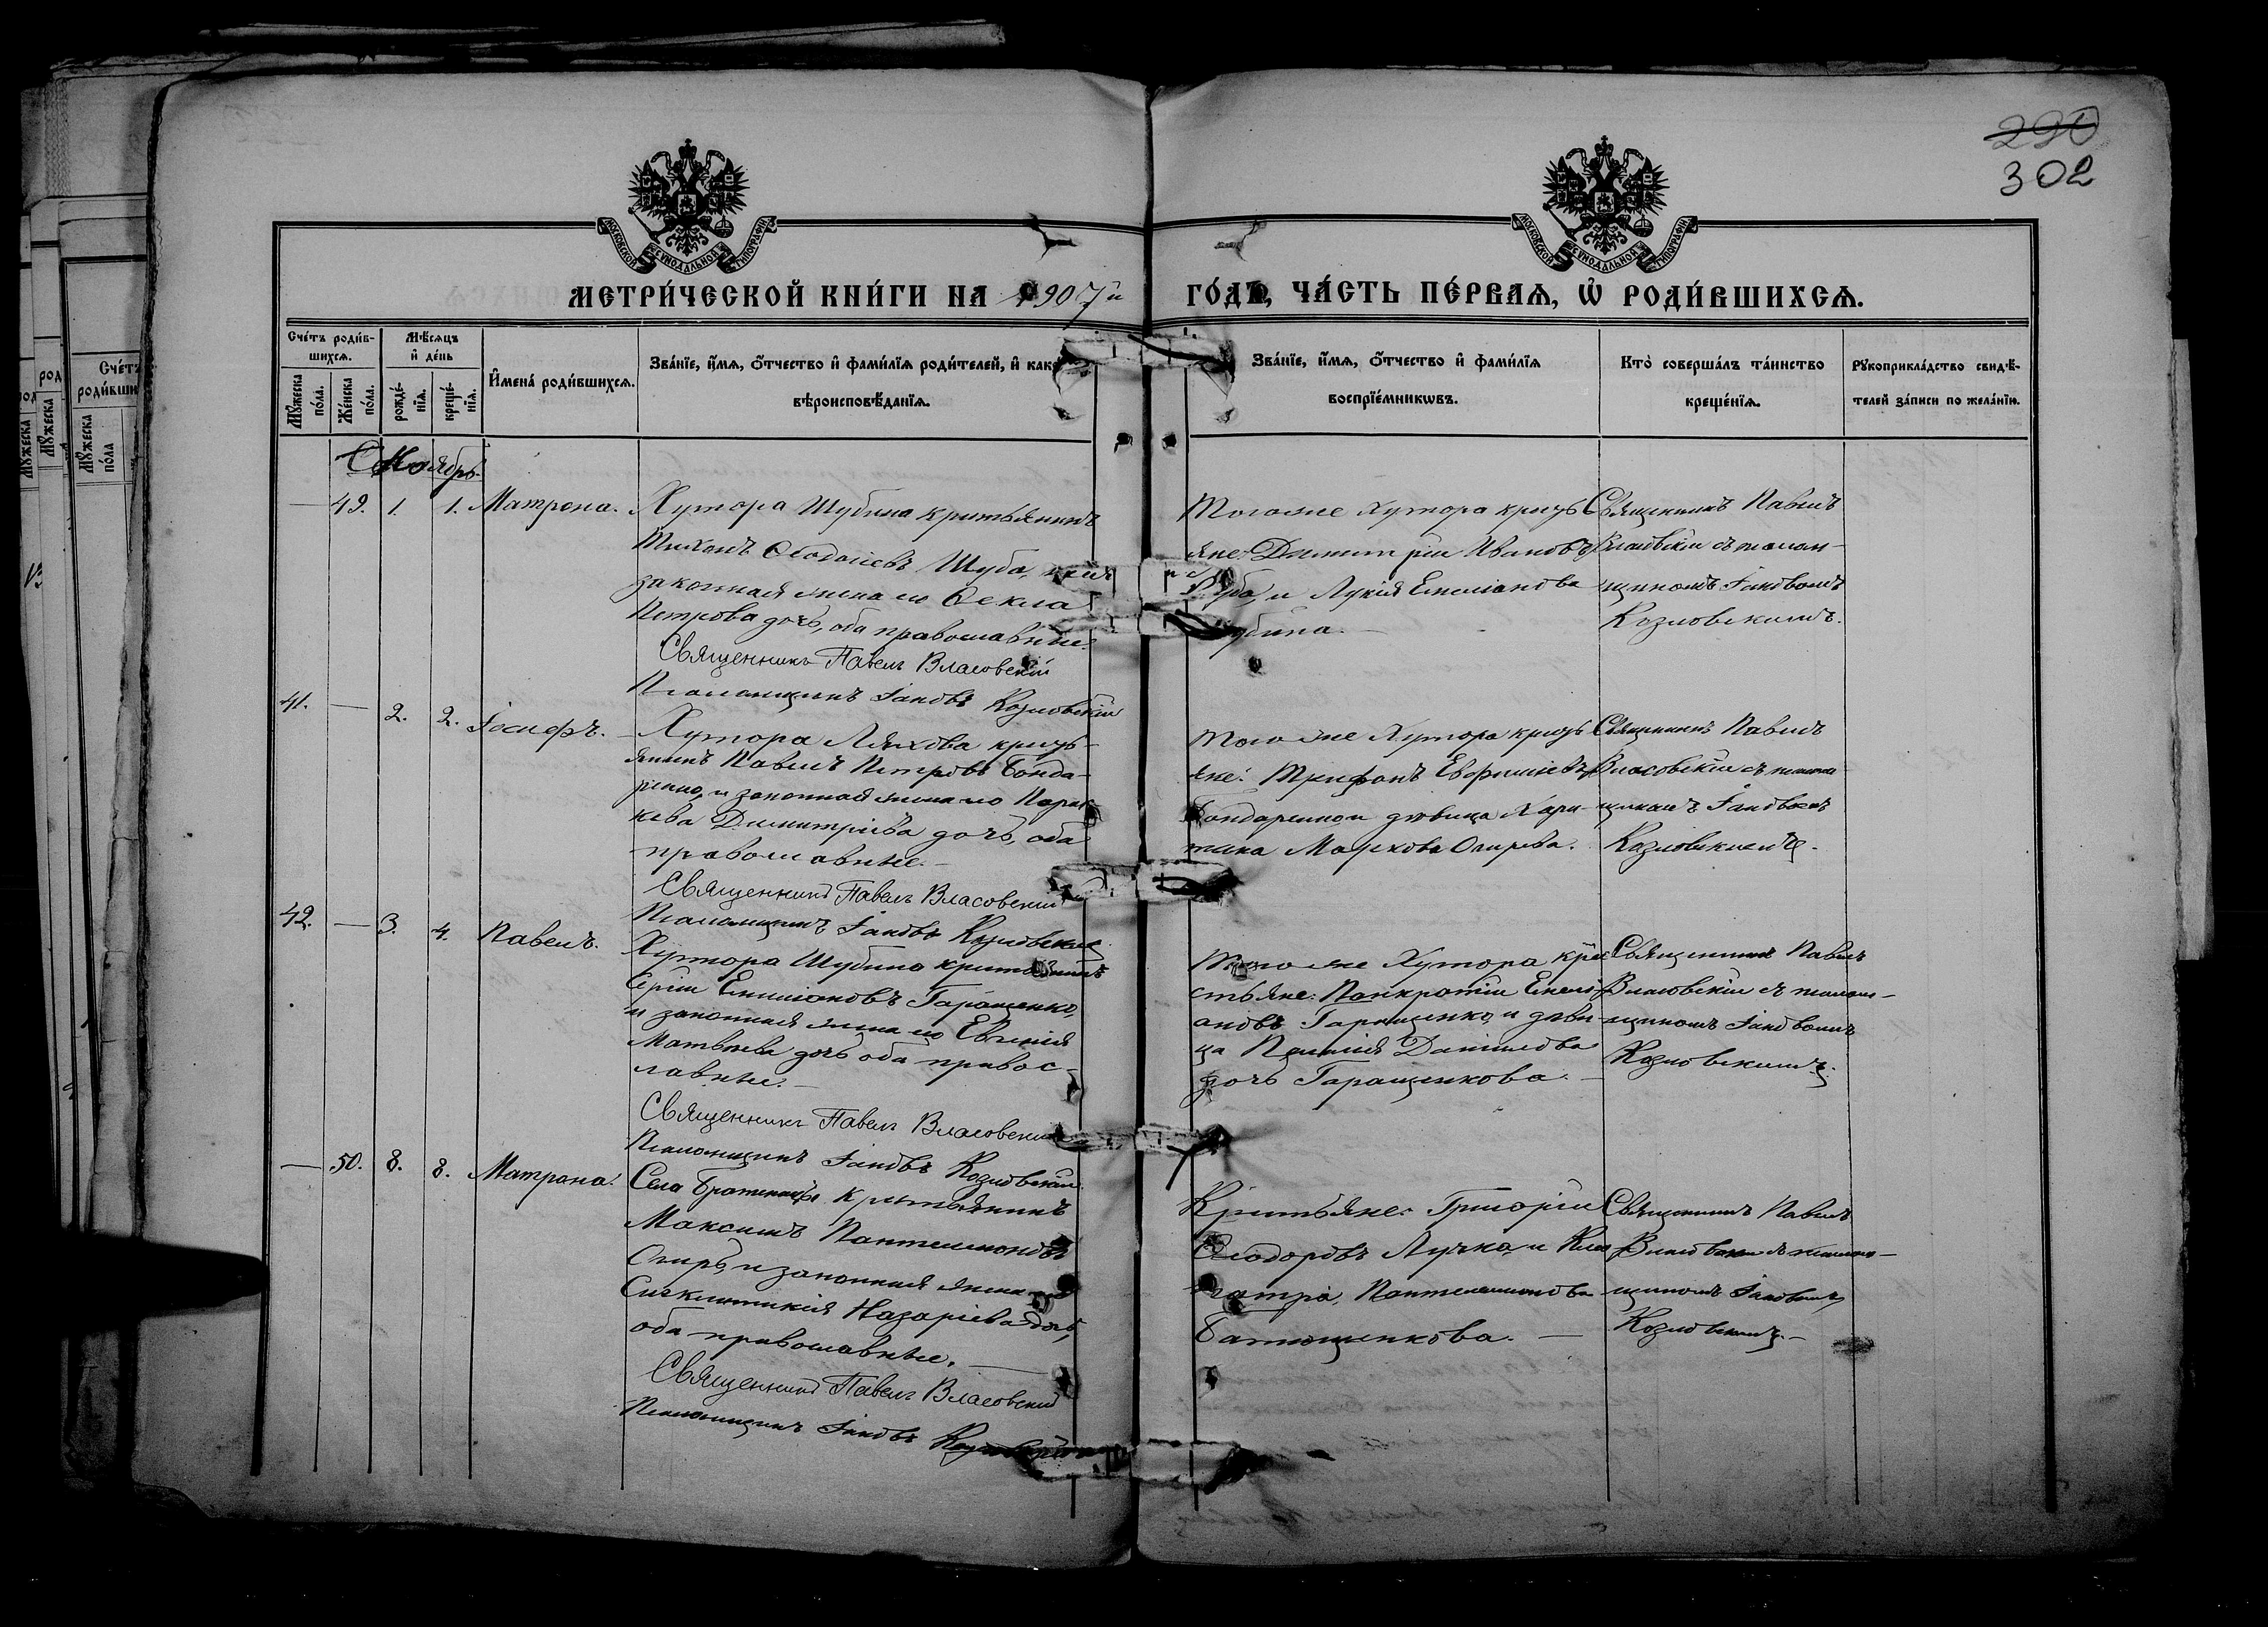 290
302
МОСКОВСКОЙ СѴНОДАЛЬНОЙ ТИПОГРАФІИ
МОСКОВСКОЙ СѴНОДАЛЬНОЙ ТИПОГРАФІИ
МЕТРИ́ЧЕСКОЙ КНИ́ГИ НА 1907й ГО́ДЪ, ЧА́СТЬ ПЕ́РВАѦ, Ѡ҆ РОДИ́ВШИХСѦ.
Сче́тъ роди́в-
шихсѧ.
Мꙋ́жеска по́ла.
Же́нска по́ла.
Мѣ́сѧцъ и҆ де́нь
рожде́-
нїѧ.
креще́-
нїѧ.
И҆мена̀ роди́вшихсѧ.
Зва́нїе, и҆́мѧ, ѻ҆́тчество и҆ фами́лїѧ роди́телей, и҆ как
вѣроисповѣ́данїѧ.
Зва́нїе, и҆́мѧ, ѻ҆́тчество и҆ фами́лїѧ
воспрїе́мникѡвъ.
Кто̀ соверша́лъ та́инство
креще́нїѧ.
Рꙋкоприкла́дство свидѣ́-
телей за́писи по жела́нїю.
Ноябрь.
— 49. 1. 1. Матрона.
Хутора Шубина крестьянинъ
Тихонъ Шуба,
законная жена его Ѳекла
Петрова дочь, оба православные.
Священникъ Павелъ Власовскій
Псаломщикъ Іаковъ Козловскій
Тогоже Хутора кресть
яне: Димитрій Ивановъ
и Лукія Емеліанова
Священникъ Павелъ
Власовскій съ псалом-
щикомъ Іаковомъ
Козловскимъ.
41. — 2. 2. Іосифъ.
Хутора Ляхова кресть-
янинъ Павелъ Петровъ Бонда-
ренко, и законная жена его Парас
кева Димитріева дочь, оба
православные.—
Священникъ Павелъ Власовскій
Псаломщикъ Іаковъ Козловскій
Того же Хутора кресть
яне: Трифонъ Евфиміевъ
Бондаренко и девица Хари-
тина Маркова Опирева.
Священникъ Павелъ
Власовскій съ псалом
щикомъ Іаковомъ
Козловскимъ.
42. — 3. 4. Павелъ.
Хутора Шубина крестьянинъ
Сергій Емеліановъ Гаращенко,
и законная жена его Евгенія
Матвѣева дочь оба правос-
лавные.—
Священникъ Павелъ Власовскій
Псаломщикъ Іаковъ Козловскій
Того же Хутора кре
стьяне: Панкратій Емелі
ановъ Гаращенко, и дѣви-
ца Даніилова
дочь Гаращенкова.—
Священникъ Павелъ
Власовскій съ псалом-
щикомъ Іаковомъ
Козловскимъ.
— 50. 8. 8. Матрона.
Села крестьянинъ
Максимъ Пантелеимоновъ
и законная жена его
Сигклитикія Назаріева дочь,
оба православные.—
Священникъ Павелъ Власовскій
Псаломщикъ Іаковъ Козловскій
Крестьяне: Григорій
Ѳеодоровъ Лучко, и Клео
патра, Пантелеимонова
Батющенкова.—
Священникъ Павелъ
Власовскій съ псалом-
щикомъ Іаковомъ
Козловскимъ.—